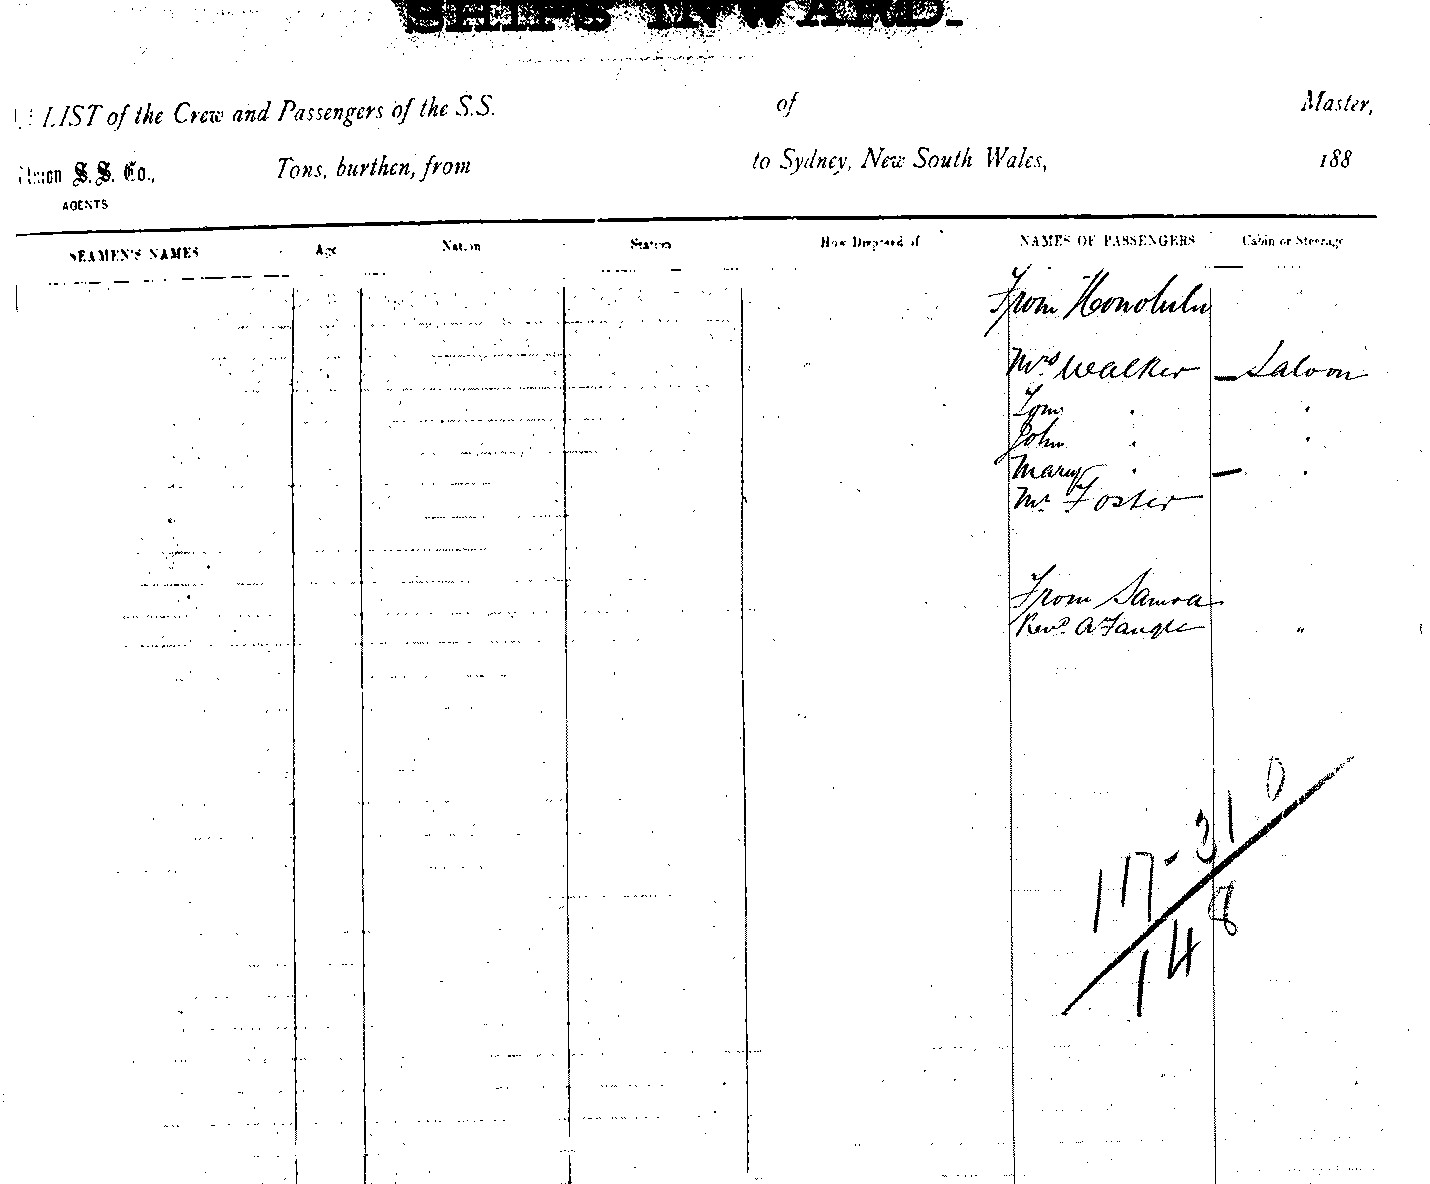 SHIPS INWARD.
LIST of the Crew and Passengers of the S.S. of Master,
Union S.S. Co., Tons, burthen, from to Sydney, New South Wales, 188
AGENTS
SEAMEN'S NAMES Age Nation Station How Disposed of NAMES OF PASSENGERS Cabin or Steerage
From Honolulu
Mrs Walker — Saloon
Tom " "
John " "
Mary " — "
Mr Foster
From Samoa
Revd A "
17-310
148